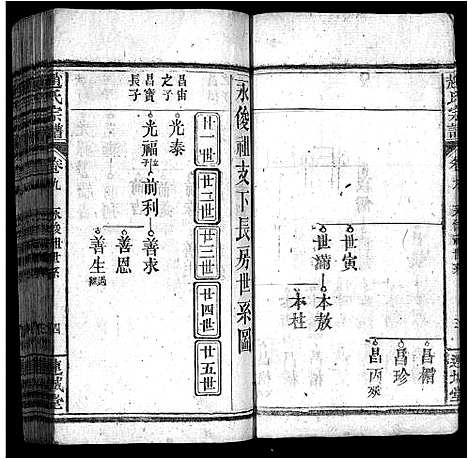 趙氏宗譜
世寅
世滿
本敖
本柱
昌櫂
昌珍
昌丙
永俊祖支下長房世系圖
廿一世
廿二世
廿三世
廿四世
廿五世
昌宙之子
光泰
昌寶長子
光福
前利
善求
善恩
善生
趙氏宗譜
卷九
永俊祖世系
四
連城堂